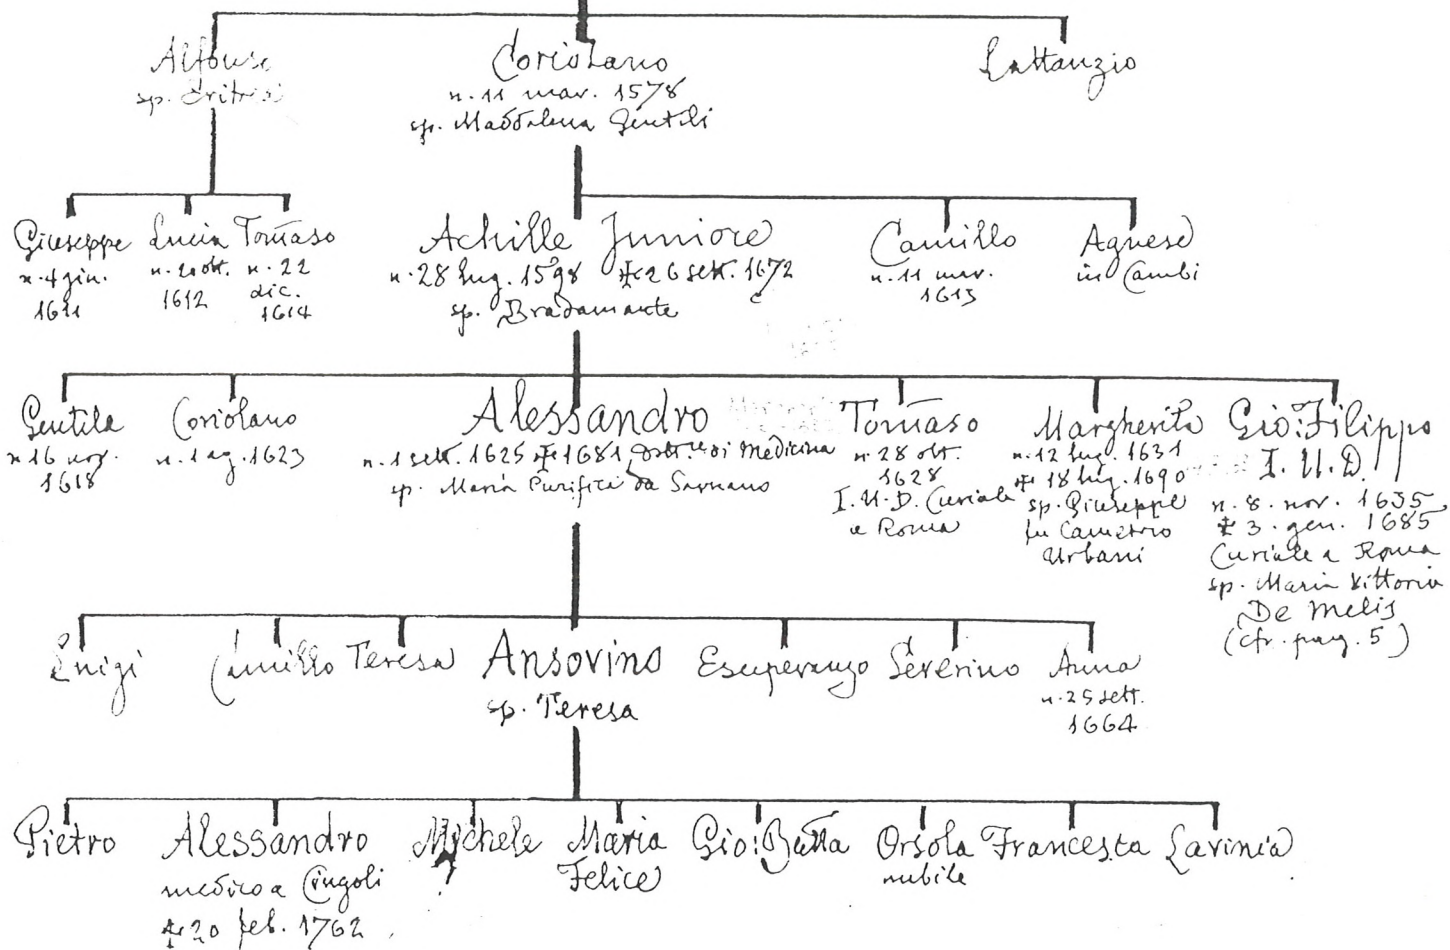 Alfonso
sp.
Coriolano
n. 11 mar. 1578
sp. Maddalena Gentili
Lattanzio
Giuseppe
n. 4 gin.
1611
Lucia
n. 20 ott.
1612
Tomaso
n. 22
dic.
1614
Achille Juniore
n. 28 lug. 1598 ✠ 26 sett. 1672
sp. Bradamante
Camillo
n. 11 mar.
1613
Agnese
in Cambi
Gentila
n 16 nov.
1618
Coriolano
n. 1 ag. 1623
Alessandro
n. 1 sett. 1625 ✠ 1681, Dott. di Medicina
sp. Maria Purifici da Sarnano
Tomaso
n. 28 ott.
1628
I. U. D. Curiale
a Roma
Margherita
n. 12 lug. 1631
✠ 18 lug. 1690
sp. Giuseppe
fu
Urbani
Gio: Filippo
I. U. D.
n. 8. nov. 1635
✠ 3. gen. 1685
Curiale a Roma
sp. Maria Vittoria
De Melis
(cfr. pag. 5)
Luigi
Camillo
Teresa
Ansovino
sp. Teresa
Esuperanzo
Severino
Anna
n. 25 sett.
1664
Pietro
Alessandro
medico a Cingoli
✠ 20 feb. 1762
Michele
?
Maria
Felice
Gio: Batta
Orsola
nubile
Francesca
Lavinia